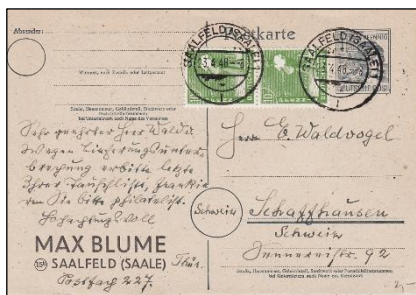 Absender:
Postkarte
PFENNIG
DEUTSCHE POST
SAALFELD (SAALE) 1
SAALFELD (SAALE) 1
Wohnort, auch Zustell- oder Leitpostamt
Straße, Hausnummer, Gebäudeteil, Stockwerk oder
Postschließfachnummer;
bei Untermietern auch Name des Vermieters
Sehr geehrter Herr
wegen
erbitte letzte
Ihrer Tauschliste,
Sie bitte philatelist.
Hochachtungsvoll
MAX BLUME
15a SAALFELD (SAALE) Thür.
Postfach 227.
Herrn E. Waldvogel
Schweiz
Schaffhausen
Schweiz
92
Straße, Hausnummer, Gebäudeteil, Stockwerk oder Postschließfachnummer;
bei Untermietern auch Name des Vermieters